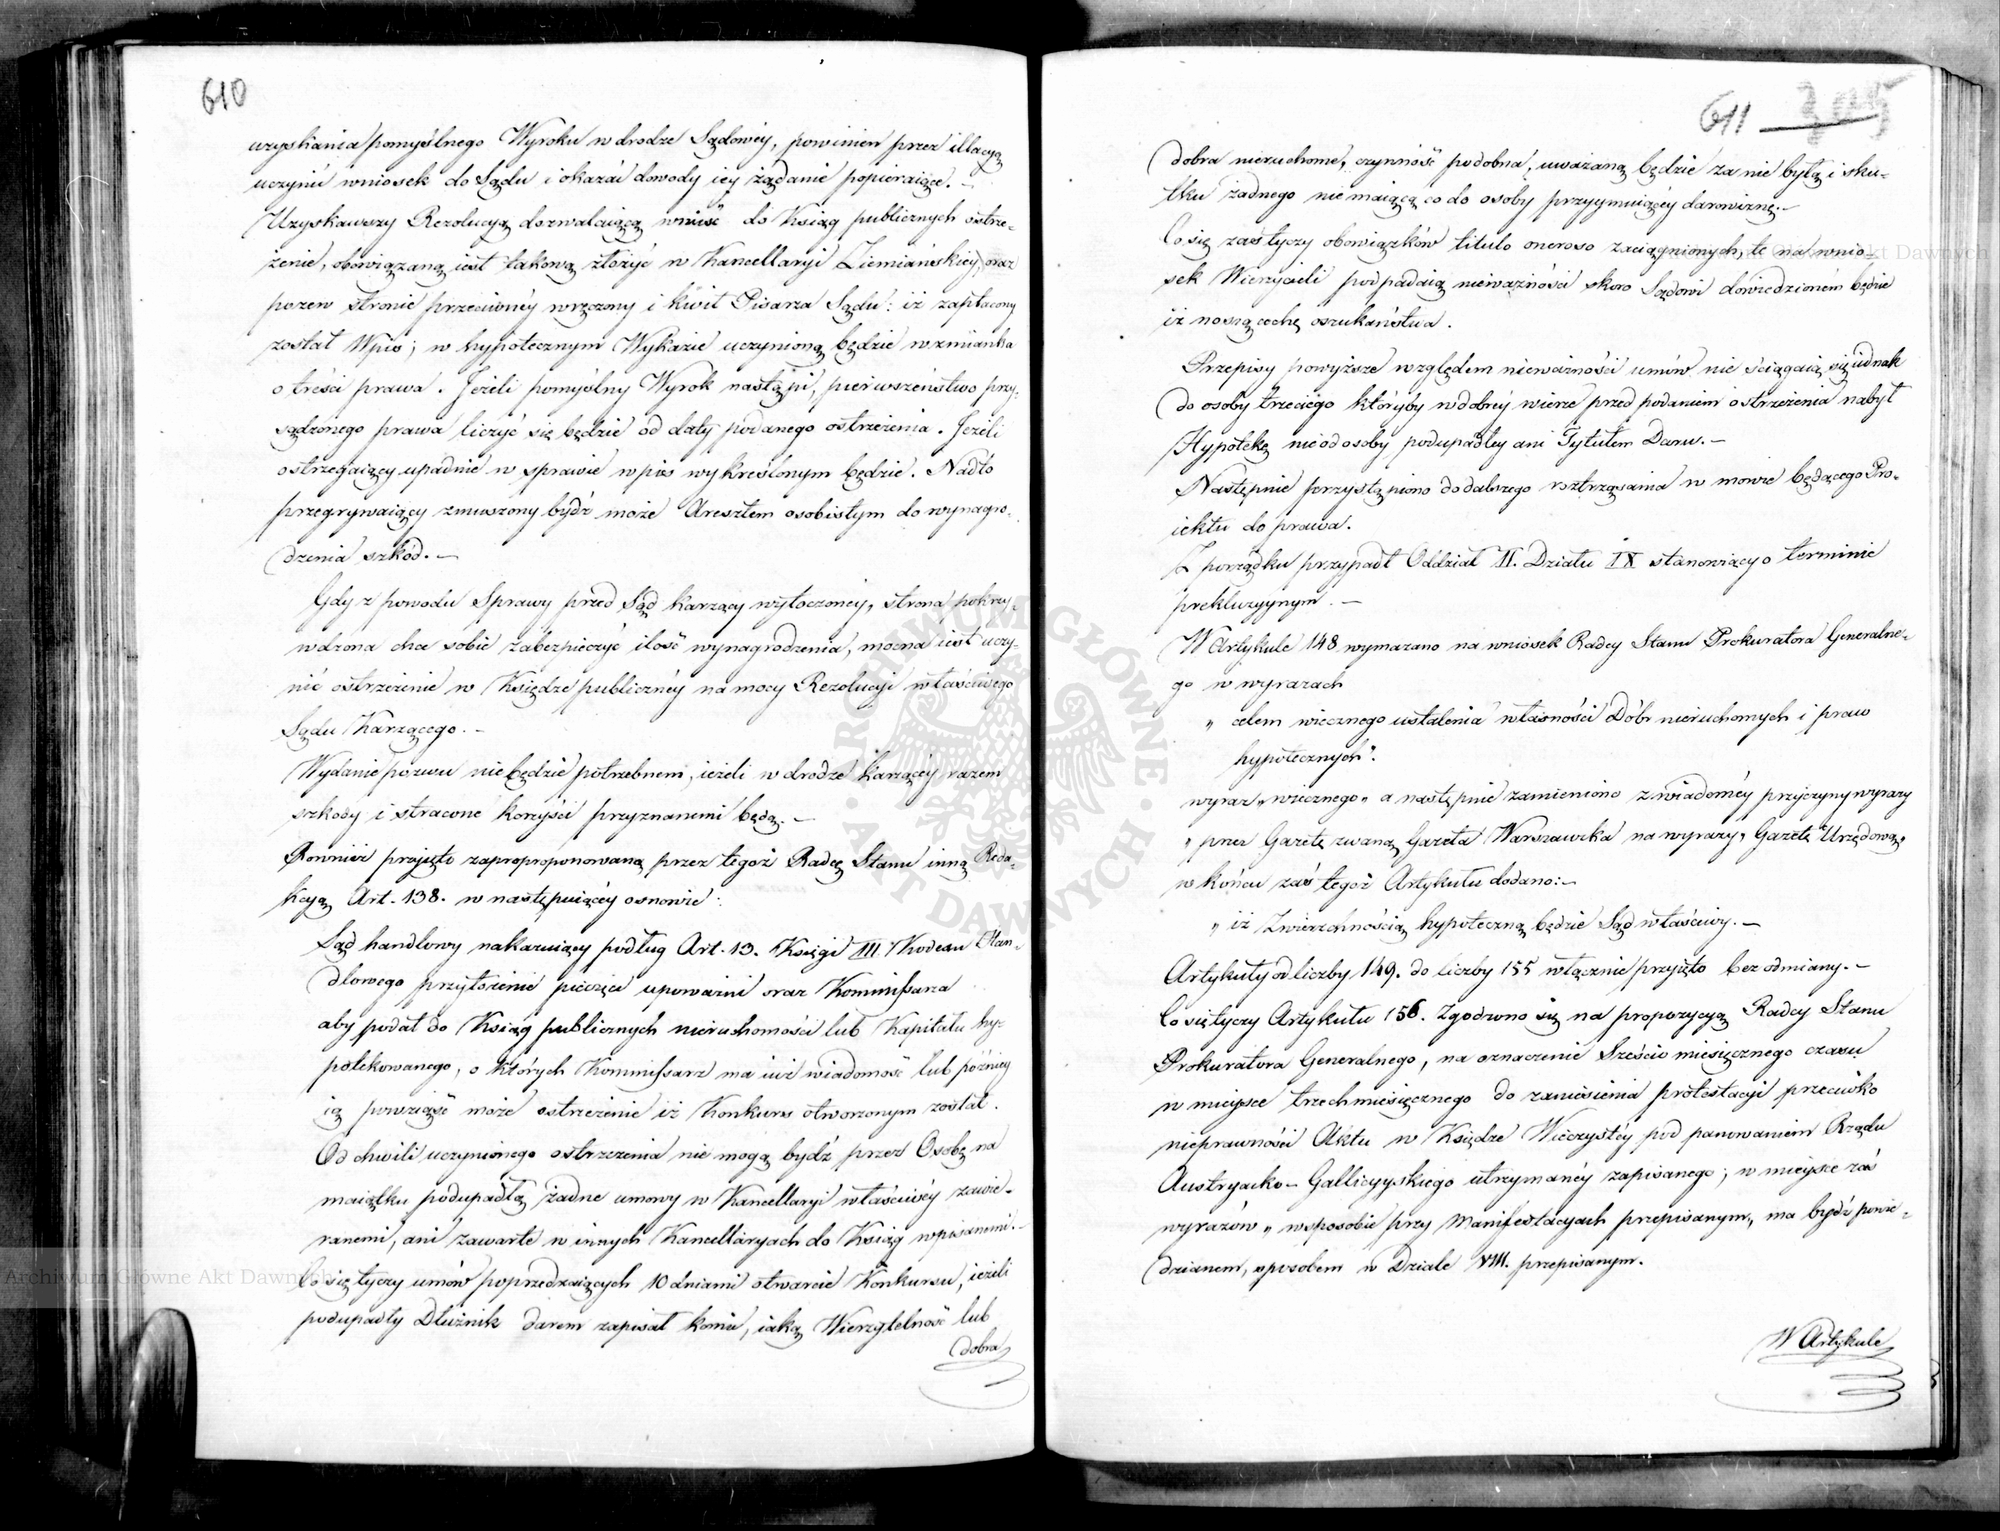 610
uzyskania pomyślnego Wyroku w drodze Sądowéy, powinien przez illacyą
uczynić wniosek do Sądu i okazać dowody iey żądanie popieraiące. –
Uzyskawszy Rezolucyą dozwalaiącą wnieść do Ksiąg publicznych ostrze-
żenie, obowiązaną iest takową złożyć w Kancellaryi Ziemiańskiey, oraz
pozew stronie przeciwnéy wręczony i kwit Pisarza Sądu: iż zapłacony
został Wpis; w hypotecznym Wykazie uczynioną będzie wzmianka
o treści prawa. Jeżeli pomyślny Wyrok nastąpi, pierwszeństwo przy-
sądzonego prawa liczyć się będzie od daty podanego ostrzeżenia. Jeżeli
ostrzegaiący upadnie w sprawie wpis wykreślonym będzie. Nadto
przegrywaiący zmuszony bydź może Aresztem osobistym do wynagro-
dzenia szkód. –
Gdy z powodu Sprawy przed Sąd karzący wytoczoney, strona pokrzy-
wdzona chce sobie zabezpieczyć ilość wynagrodzenia, mocna iest uczy-
nić ostrzeżenie w Księdze publicznéy na mocy Rezolucyi właściwego
Sądu Karzącego. –
Wydanie pozwu nie będzie potrzebnem, ieżeli w drodze karzącéy razem
szkody i stracone korzyści przyznanemi będą. –
Rownież przyięto zapropoponowaną przez tegoż Radcę Stanu inną Reda-
kcyą Art. 138. w następuiącéy osnowie:
Sąd handlowy nakazuiący podług Art. 13. Księgi III Kodexu Han-
dlowego przyłożenie pieczęci upoważni oraz Kommissarza
aby podał do Ksiąg publicznych nieruchomości lub Kapitału hy-
potekowanego, o których Kommissarz ma iuż wiadomość lub późniey
ią powziąść może ostrzeżenie iż Konkurs otworzonym został.
Od chwili uczynionego ostrzeżenia nie mogą bydź przez Osobę na
maiątku podupadłą żadne umowy w Kancellaryi właściwéy zawie-
ranemi, ani zawarte w innych Kancellaryach do Ksiąg wpisanemi. –
Co się tyczy umów poprzedzaiących 10 dniami otwarcie Konkursu, ieżeli
podupadły Dłużnik darem zapisał komu, iaką Wierzytelność lub
dobra
611 305
dobra nieruchome, czynność podobna, uważaną będzie za nie byłą i sku-
tku żadnego nie maiącą co do osoby przyymuiącéy darowiznę. –
Co się zaś tyczy obowiązków titulo oneroso zaciągnionych, te na wnio-
sek Wierzycieli podpadaią nieważności skoro Sądowi dowiedzionem będzie
iż noszą cechę oszukaństwa.
Przepisy powyższe względem nieważności umów nie ściągaią się iednak
do osoby trzeciego któryby w dobrey wierze przed podaniem ostrzeżenia nabył
Hypotekę nie od osoby podupadłey ani Tytułem Daru. –
Następnie przystąpiono do dalszego roztrząsania w mowie będącego Pro-
iektu do prawa.
Z porządku przypadł Oddział II. Działu IX stanowiący o terminie
prekluzyynym. –
W Artykule 148 wymazano na wniosek Radcy Stanu Prokuratora Generalne-
go w wyrazach
„ celem wiecznego ustalenia własności Dóbr nieruchomych i praw
hypotecznych".
wyraz „wiecznego„ a następnie zamieniono z wiadoméy przyczyny wyrazy
„ przez Gazetę zwaną Gazeta Warszawska na wyrazy „ Gazetę Urzędową„
w końcu zaś tegoż Artykułu dodano: –
„ iż Zwierzchnością hypoteczną będzie Sąd właściwy. –
Artykuły od liczby 149. do liczby 155 włącznie przyięto bez odmiany. –
Co się tyczy Artykułu 156. Zgodzono się na propozycyą Radcy Stanu
Prokuratora Generalnego, na oznaczenie Sześcio miesięcznego czasu
w mieysce trzechmiesięcznego do zaniesienia protestacyi przeciwko
nieprawności Aktu w Księdze Wieczystéy pod panowaniem Rządu
Austryacko – Gallicyyskiego utrzymanéy zapisanego; w mieysce zaś
wyrazów „ w sposobie przy Manifestacyach przepisanym„ ma bydź powie-
dzianem, sposobem w Dziale VIII. przepisanym.
W Artykule
Archiwum Główne Akt Dawnych
ARCHIWUM GŁÓWNE AKT DAWNYCH